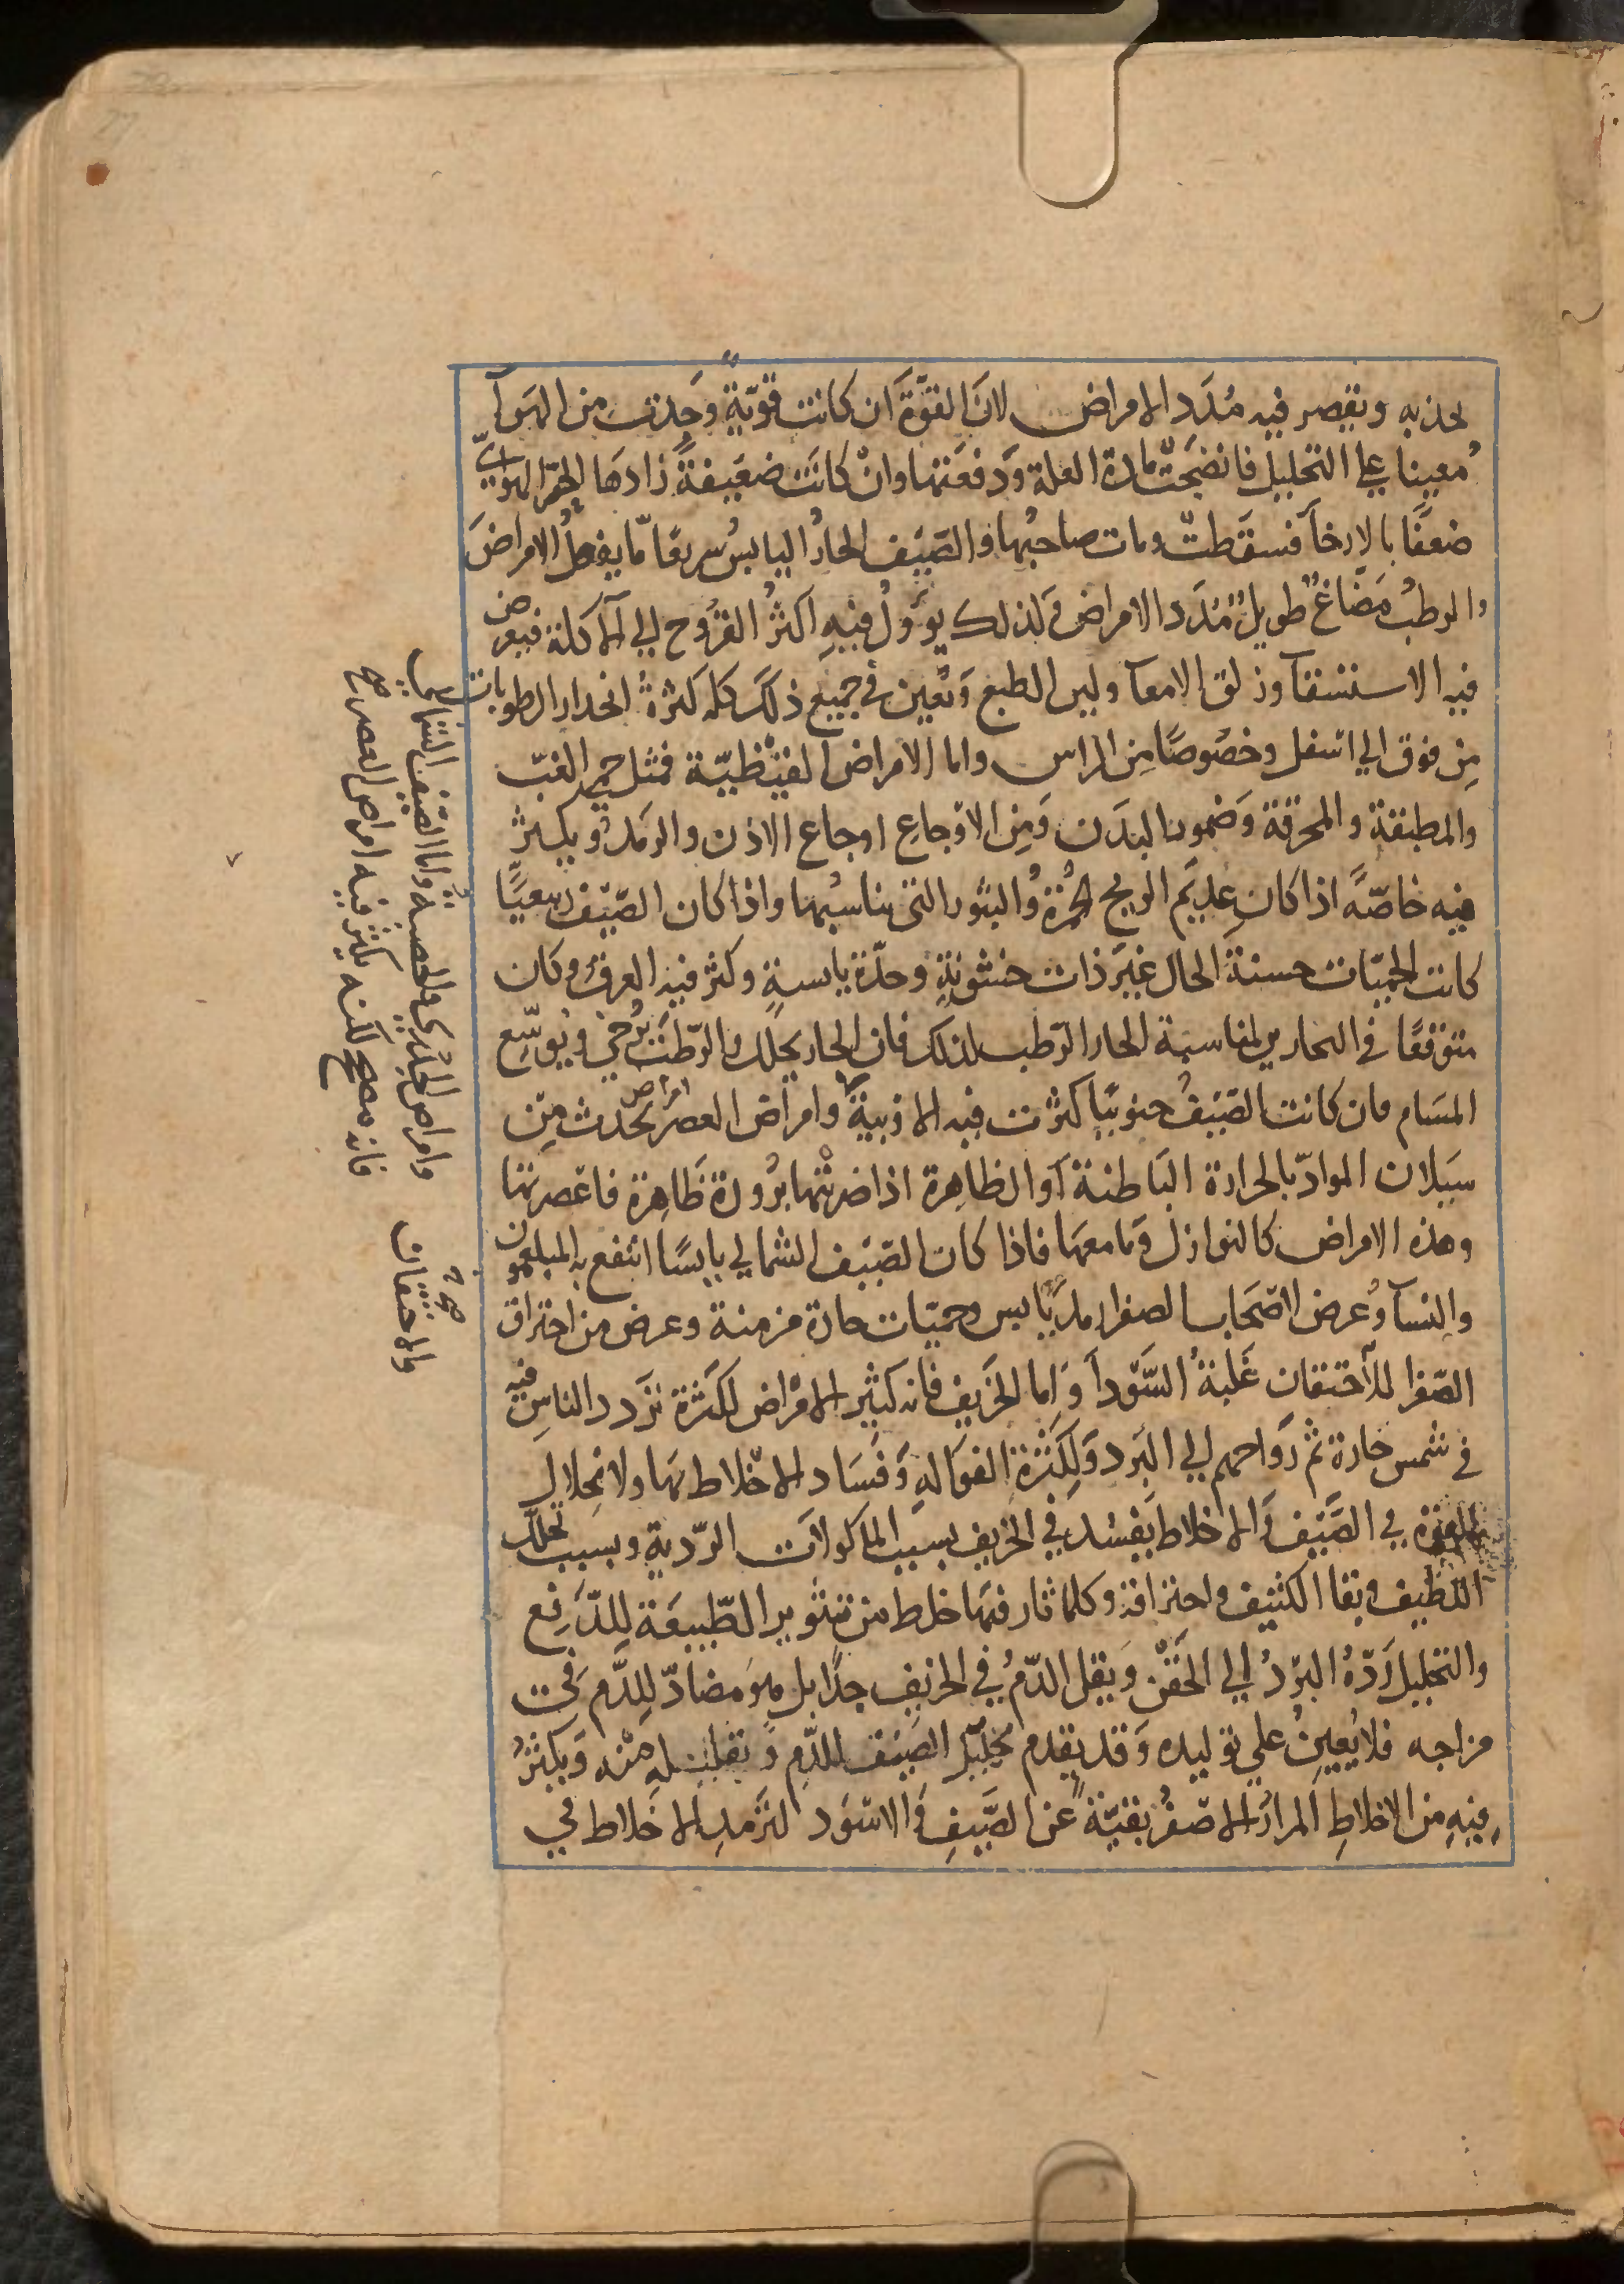 لجذبه ويقصر فيه مُدَد الامراض لانَ القوّةَ ان كانت قويّةً وَجَدت من الهوآ
مُعينا على التحليل فانضَجَتْ مادة العلة وَدفعَتها وانْ كانَت ضعَيفةً زادهَا الحرّ الهوايّ
ضعفًا بالارخآ فسقَطتْ ومات صاحبُها والصَيف الحارُ اليابسُ سريعًا مّا يفصلُ الامراضَ
والرطبُ مَضَاغٌ طويلُ مُدَد الامراض وَلذلك يؤولُ فيهِ اكثرُ القرُوح الي الآكلة فيعرض
فيه الاستسقآ وزلق الامعآ ولين الطبع وَتُعين في جميع ذلكَ كله كثرةُ انحدار الرطوبات
مِن فوق الي اسفل وخصُوصًا مِن الراس واما الامراض القيْظيّة فمثل حمى الغبّ
والمطبقة والمحرقة وَضمور البدَن وَمِن الاوْجاعِ اوجاع الاذن والرمَد ويكثرُ
فيه خاصّةً اذا كان عديَم الريح الحُمْرَةُ والبثور التى يناسبُها واذا كان الصَيْف ربيعيًا
كانت الحميّات حسنة الحال غيَر ذات خشونةٍ وحدّة يابسةٍ وكثر فيه العرق وكان
متوقعًا في البحارين لمناسبة الحار الرّطب لذلك فان الحار يحلل والرّطبَ يُرخي ويوسِّع
المسَام فان كانت الصَيفُ جنوبيًا كثرت فيه الاوبيةُ وامراض العصر امراض يحدث مِن
سَيلان الموادّ بالحرارة البَاطنة أوالظاهِرة اذا ضربتْها بُرودة ظَاهِرة فاعَصرتها
وهذه الامراض كالنوازل وَمامعهَا فاذا كان الصَيف الشمالي يابسًا انتفع به المبلغمون
والنسآ وُعرض لاصَحاب الصفرا رمد يَابس وحميّات حادة مزمنة وعرض من احتراق
الصّفرا للاحتقان غَلَبةُ السَّوْدآ وَاما الخَريف فانه كثير الامْرَاض لكَثرة تَرَدد الناسِ فيه
في شمس حارة ثم رَواحهم الي البَرد وَلِكَثْرة الفوَاكه وَفسَاد الاخْلاط بهَا ولانحِلالِ
القوة في الصَّيْف وَالاخلاط يَفسُد في الخريف بسبب الماكولات الرّدية وبسبب تحلل
اللطيف وبقا الكثيف واحتراقة وكلما ثار فيهَا خلط من تثوير الطّبيعَة لِلدّفِع
والتحليل رَدّهُ البرْدُ الي الحَقن وَيقل الدّمُ في الخريف جدًا بل هوَ مضادّ لِلدَّم فى
مزاجه فلا يُعينُ علي توليده وَقد يَقدم تحليل الصَيف للدّم وَتقليله مِنْه وَيكثرُ
فِيهِ من الاخلاطِ المرارُ الاصْفَرُ بقيّةً عن الصَّيفِ وَالاسْوَد لترَمد الاخَلاط في
واما الصَيف الشمالي
وامراض الجدري والحصبة
فانه منضج لكنه يكثر فيه امراض العصر صح
والاحتقان
صح